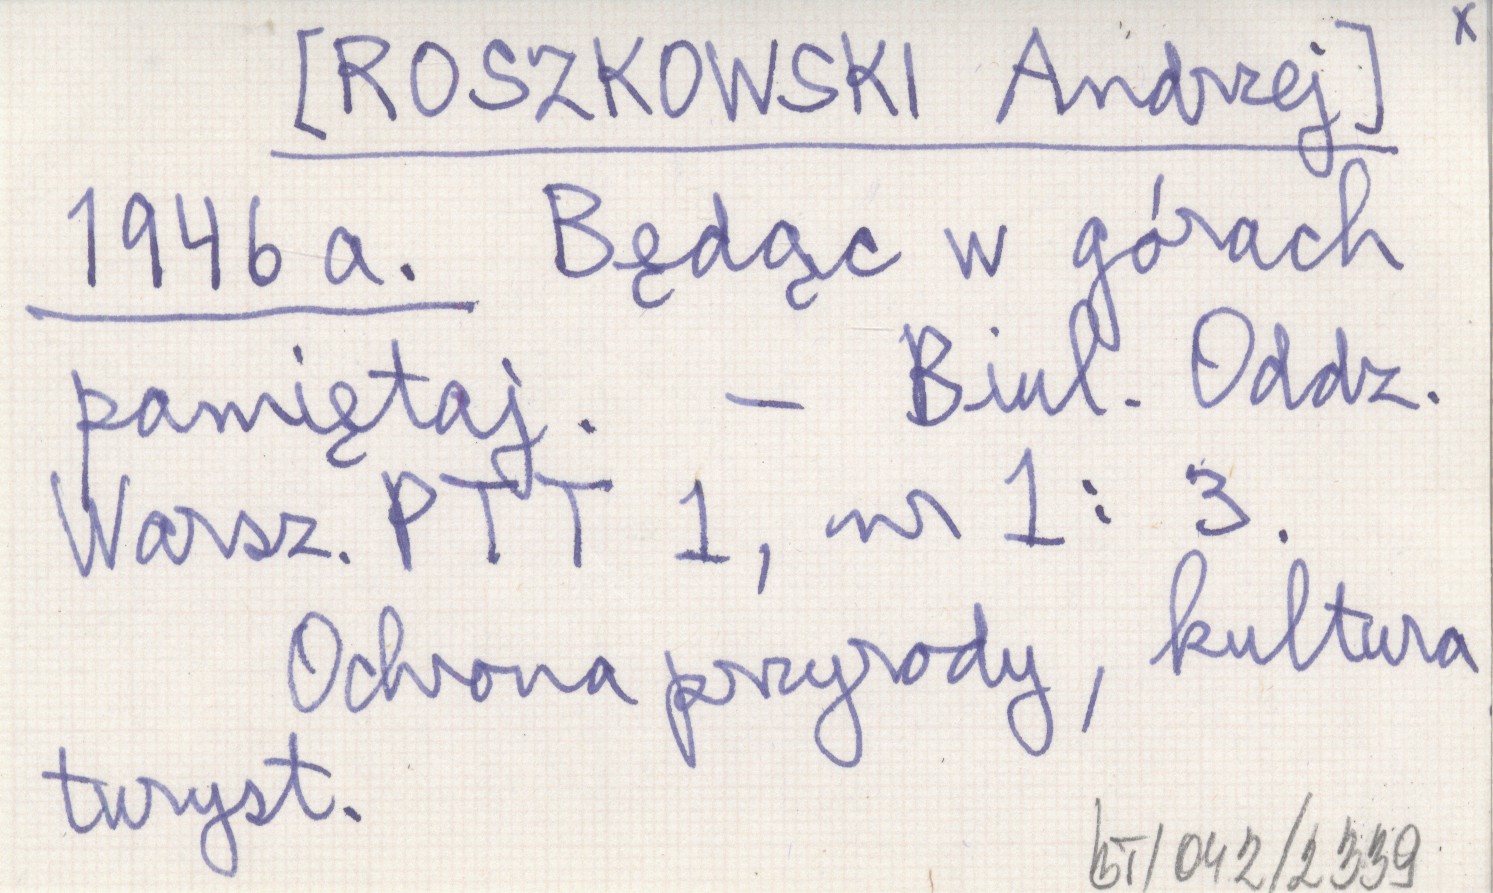 x
[ROSZKOWSKI Andrzej]
1946 a. Będąc w górach
pamiętaj. — Biul. Oddz.
Warsz. PTT 1, nr 1: 3.
Ochrona przyrody, kultura
turyst.
bT/042/2339